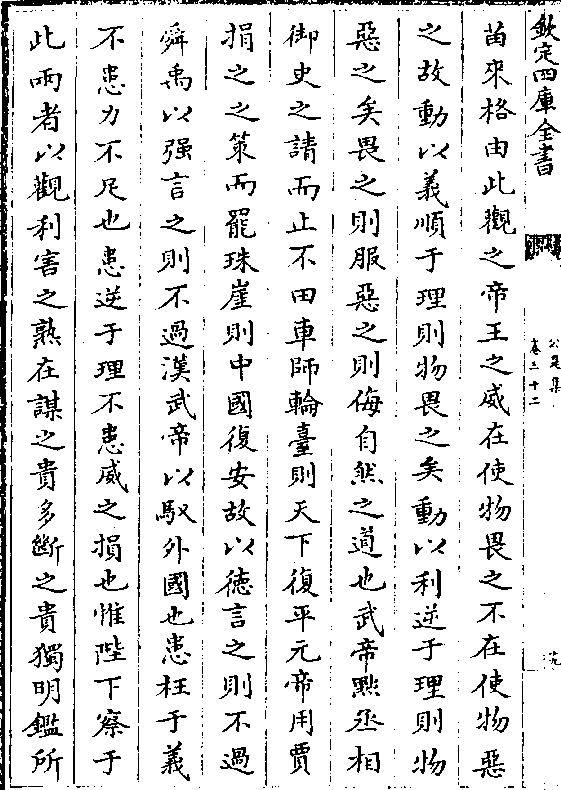 欽定四庫全書
公是集
卷三十二
苗來格由此觀之帝王之威在使物畏之不在使物惡
之故動以義順于理則物畏之矣動以利逆于理則物
惡之矣畏之則服惡之則侮自然之道也武帝㸃丞相
御史之請而止不田車師輪臺則天下復平元帝用賈
捐之之策而罷珠崖則中國復安故以德言之則不過
舜禹以强言之則不過漢武帝以馭外國也患枉于義
不患力不足也患逆于理不患威之損也惟陛下察于
此兩者以觀利害之熟在謀之貴多斷之貴獨明鑑所